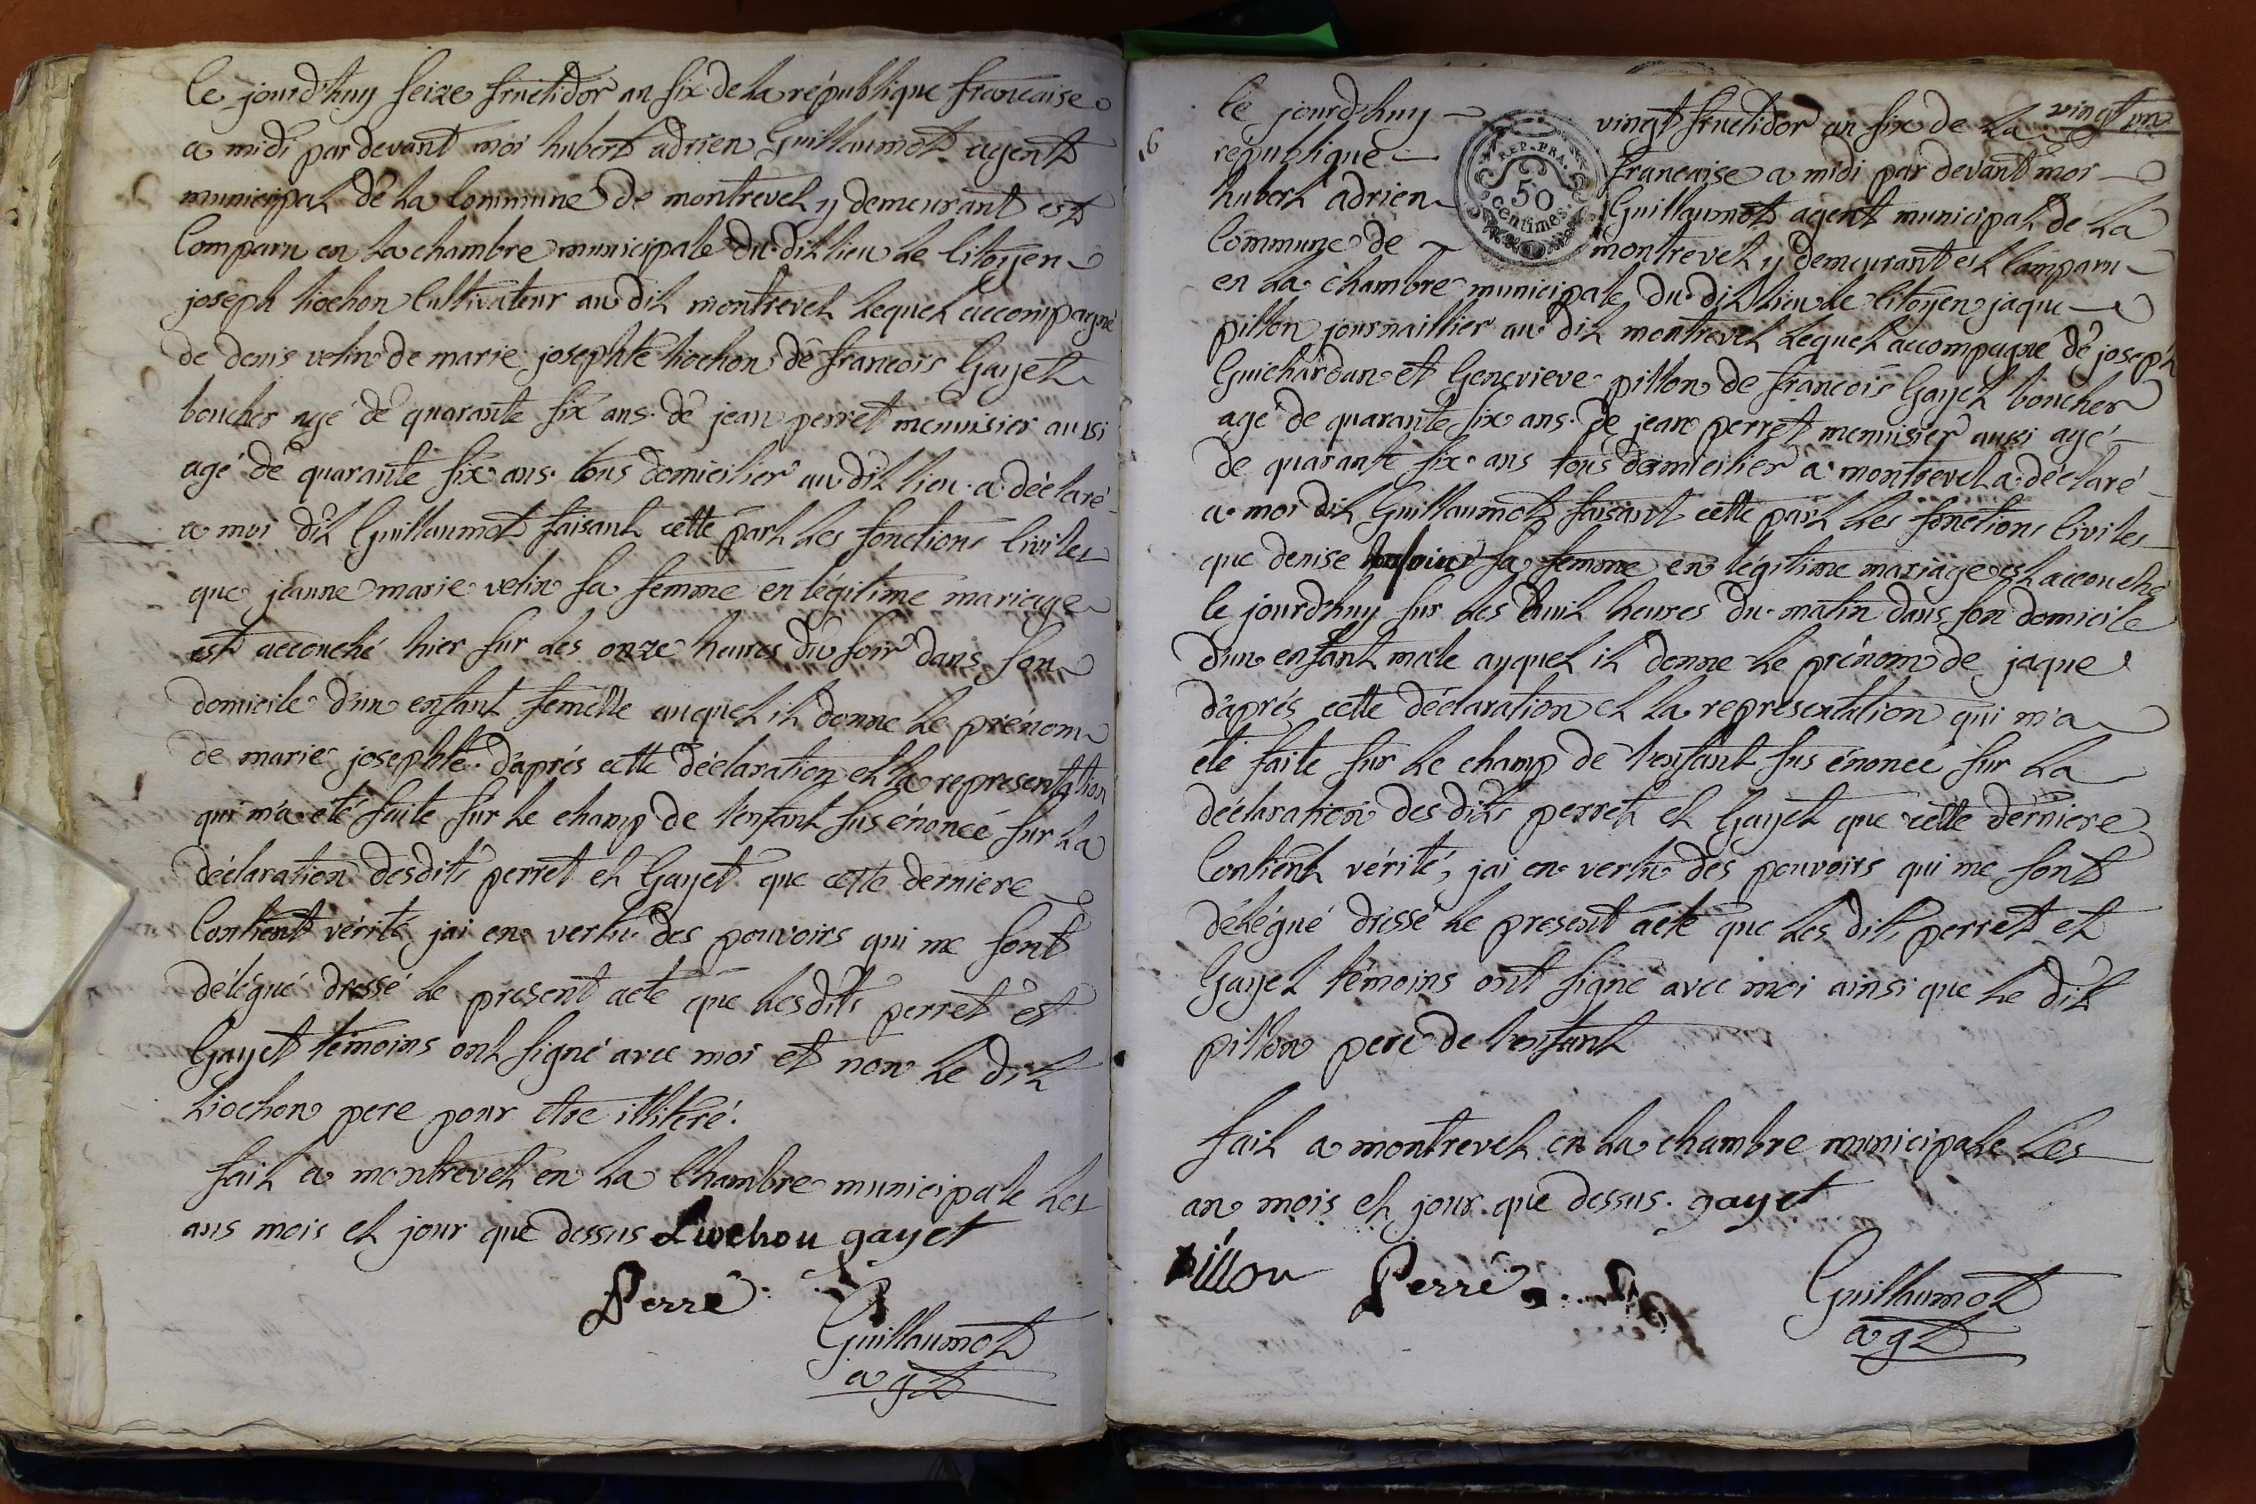 Ce jourd'huy seize fructidor an six de la république francaise
a midi par devant moi hubert adrien Guillaumot agent
municipal de la Commune de montrevel y demeurant est
Comparu en la chambre municipale du dit lieu le Citoyen
joseph liochon Cultivateur au dit montrevel lequel accompagné
de denis velin de marie josephte liochon de francois Gayet
boucher agé de quarante six ans de jean perret menuisier aussi
agé de quarante six ans tous domicilier au dit lieu a déclaré
a moi dit Guillaumot faisant cette part les fonctions Civiles
que jeanne marie velin sa femme en légitime mariage
est accouché hier sur les onze heures du soir dans son
domicile d'un enfant femelle auquel il donne le prénom
de marie josephte d'aprés cette déclaration et la representattion
qui m'a été faite sur le champ de l'enfant sus énoncé sur la
déclaration desdits perret et Gayet que cette derniere
Contient vérité jai en vertu des pouvoirs qui me sont
délégué dressé le present acte que lesdits perret et
Gayet témoins ont signé avec moi et non le dit
liochon pere pour etre illitéré.
fait a montrevel en la Chambre municipale les
ans mois et jour que dessus gayet
Perré
Guillaumot
agt
vingt un
16
Ce jourd'huy vingt fructidor an six de la
république francaise a midi par devant moi
hubert adrien Guillaumot agent municipal de la
Commune de montrevel y demeurant est Comparu
REP. FRA.
50
centimes.
en la chambre municipale du dit lieu le Citoyen jaque
pillon journaillier au dit montrevel lequel accompagné de joseph
Guichardan et Genevieve pillon de francois Gayet boucher
agé de quarante six ans de jean perret menuisier aussi agé
de quarante six ans tous domicilier a montrevel a déclaré
a moi dit Guillaumot faisant cette part les fonctions Civiles
que denise sa femme en légitime mariage est accouché
le jourd'huy sur les huit heures du matin dans son domicile
d'un enfant male auquel il donne le prénom de jaque
d'aprés cette déclaration et la representation qui m'a
été faite sur le champ de l'enfant sus énoncé sur la
déclaration des dits perret et Gayet que cette derniere
Contient vérité, jai en vertu des pouvoirs qui me sont
délégué dressé le present acte que les dits perret et
Gayet témoins ont signé avec moi ainsi que le dit
pillon pere de l'enfant
fait a montrevel en la chambre municipale les
an mois et jour que dessus. gayet
pillon Perré
Guillaumot
agt